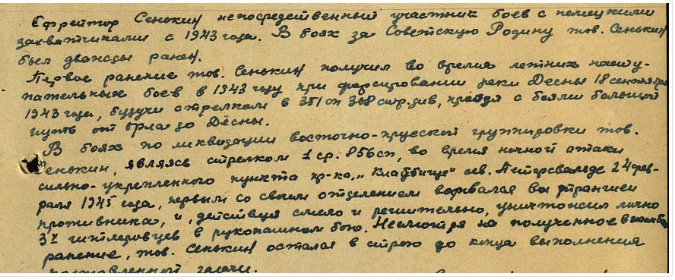 Ефрейтор Сенькин непосредственный участник боев с немецкими
захватчиками с 1943 года. В боях за Советскую Родину тов. Сенькин
был дважды ранен.
Первое ранение тов. Сенькин получил во время летних насту-
пательных боев в 1943 году при форсировании реки Десны 18 сентября
1943 года, будучи стрелком в 351 сп 308 стр. див, пройдя с боями большой
путь от Орла до Десны.
В боях по ликвидации восточно-прусской группировки тов.
Сенькин, являясь стрелком 2 ср. 856 сп, во время ночной атаки
сильно-укрепленного пункта сев. 24 фев-
раля 1945 года, первым со своим отделением ворвался в траншеи
противника, и, действуя смело и решительно, уничтожил лично
3х гитлеровцев в рукопашном бою. Несмотря на полученное
ранение, тов. Сенькин остался в строю до конца выполнения
поставленной задачи.